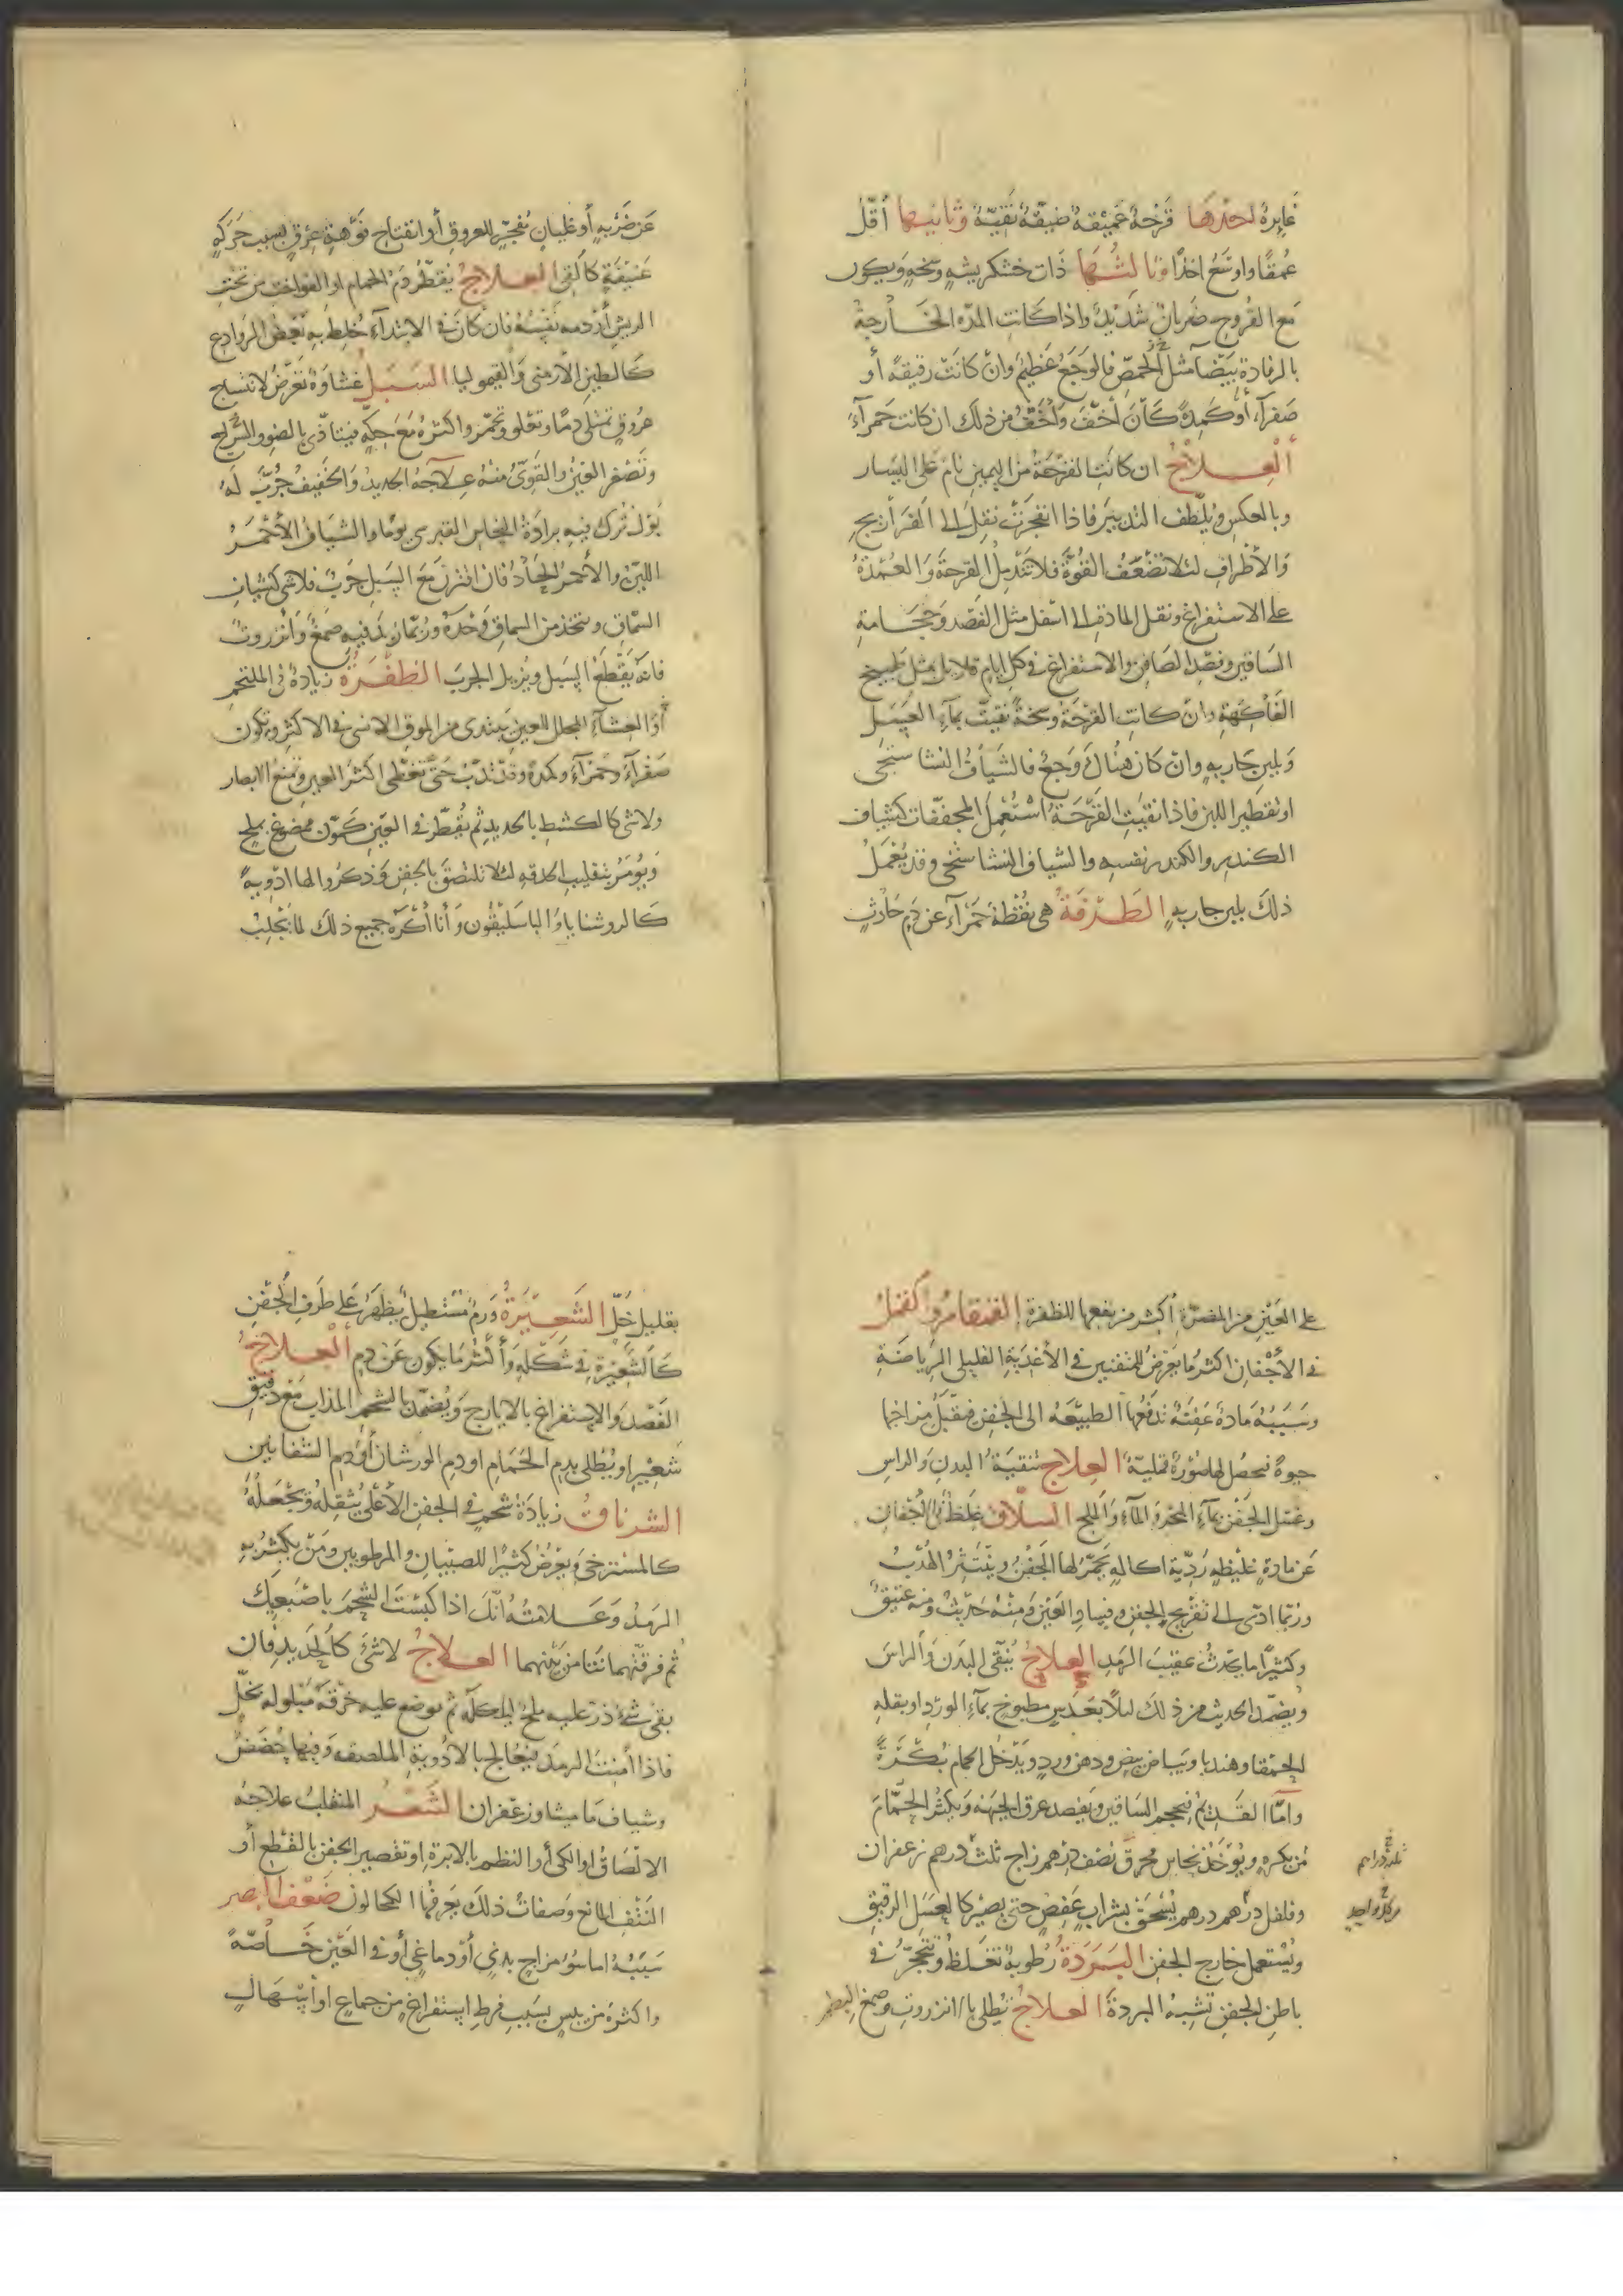 غايرة احدها قرحة عميقة ضيقة نقية وثانيها أقل
عمقا واوسع اخذا وثالثها ذات خشكريشه وسخه ويكون
مع القروح ضربان شديد واذا كانت المدة الخارجة
بالرفادة بيضا مثل الحمص فالوجع عظيم وان كانت رقيقة أو
صفرآء أو كمدة كان أخف وأخف من ذلك ان كانت حمرآء
العلاج ان كانت القرحة من اليمين نام على اليسار
وبالعكس ويلطف التدبير فاذا انفجرت نقل الى الفراريج
والأطراف لئلا تضعف القوة فلا تندمل القرحة والعمدة
على الاستفراغ ونقل المادة الى اسفل مثل الفصد وحجامة
الساقين وفصد الصافن والاستفراغ في كل ايام قلايل بمثل طبيخ
الفاكهة وان كانت القرحة وسخة نقيت بمآء العسل
وبلبن جاريه وان كان هناك وجع فالشياف النشا ستجى
او تقطير اللبن فاذا نقيت القرحة استعمل المجففات كشياف
الكندر والكندر نفسه والشياف النشا ستجى وقد يعمل
ذلك بلبن جاريه الطرفة هي نقطة حمرآء عن دم حادث
عن ضربه أو غليان مفجر للعروق أو انفتاح فوهة عرق بسبب حركه
عنيفة كالقئ العلاج يقطر دم الحمام او الفواخت من تحت
الريش أو دمه نفسه فان كان في الابتدآء خلط به بعض الروادع
كالطين الأرمنى والقيموليا السبل غشاوة تعرض لانتساج
عروق تمتلى دما وتغلو وتحمر واكثره مع حكة فيتاذى بالضوء والسراج
وتصغر العين والقوى منه علاجه الحديد والخفيف جرب له
بول ترك فيه برادة النحاس القبرسى يوما والشياف الأحمر
اللين والأحمر الحاد فان اقترن مع السبل جرب فلا شى كشياف
السماق ويتخذ من السماق وحده وربما زيد فيه صمغ وانزروت
فانه يقطع السبل ويزيل الجرب الظفرة زيادة في الملتحم
أو الغشآء المجلل للعين يبتدى من الموق الانسى في الاكثر وتكون
صفرآء وحمرآء وكمدة وقد تدب حتى تغطى اكثر العين وتمنع الابصار
ولا شى كالكشط بالحديد ثم يقطر في العين كمون ممضوغ بملح
ويؤمر بتقليب الحدقه لئلا تلتصق بالجفن وذكروا لها ادوية
كالروشنايا والباسليقون وأنا أكره جميع ذلك لما يجلب
على العين من المضرة أكثر من نفعها للظفرة القمقام والقمل
في الأجفان اكثر ما يعرض للمتفننين في الأغذية القليلى الرياضة
وسببه مادة عفنة تدفعها الطبيعه الى الجفن فيقبل مزاجها
حيوة فيحصل لها صورة قملية العلاج تنقية البدن والراس
وغسل الجفن بمآء البحر والمآء والملح السلاق غلظ في الأجفان
عن مادة غليظه ردية اكاله يحمر لها الجفن وينتثر الهدب
وربما ادى الى تقريح الجفن وفساد العين ومنه حديث ومنه عتيق
وكثيرا ما يحدث عقيب الرمد العلاج ينقى البدن والراس
ويضمد الحديث من ذلك ليلا بعدس مطبوخ بمآء الورد او بقله
الحمقا وهندبا وبياض بيض ودهن ورد ويدخل الحمام بكرة
واما القديم فيحجم الساقين ويفصد عرق الجبهه ويكثر الحمام
من بكره ويوخذ نحاس محرق نصف درهم زاج ثلث درهم زعفران
وفلفل درهم درهم يسحق بشراب عفص حتى يصير كالعسل الرقيق
ويستعمل خارج الجفن البردة رطوبة تغلظ وتتحجر في
باطن الجفن تشبه البردة العلاج تطلى بالانزروت وصمغ البطم
بقليل خل الشعيرة ورم مستطيل يظهر على طرف الجفن
كالشعيرة في شكله وأكثر ما يكون عن دم العلاج
الفصد والاستفراغ بالايارج ويضمد بالشحم المذاب مع دقيق
شعير او يطلى بدم الحمام او دم الورشان أو دم الشفانين
الشرناق زيادة شحم في الجفن الأعلى يثقله ويجعله
كالمسترخى ويعرض كثيرا للصبيان والمرطوبين ومن يكثر به
الرمد وعلامته انك اذا كبست الشحم باصبعيك
ثم فرقتهما نتا من بينهما العلاج لا شئ كالحديد فان
بقى شئ ذر عليه ملح لياكله ثم توضع عليه خرقة مبلوله بخل
فاذا أمنت الرمد فيعالج بالادوية الملصقه وفيها حضض
وشياف ماميثا وزعفران الشعر المنقلب علاجه
الالصاق او الكى أو النظم بالابرة او تقصير الجفن بالقطع أو
النتف المانع وصفات ذلك يعرفها الكحالون ضعف البصر
سببه اما سؤ مزاج بدني أو دماغي أو في العين خاصة
واكثره من يبس بسبب فرط استفراغ من جماع او اسهال